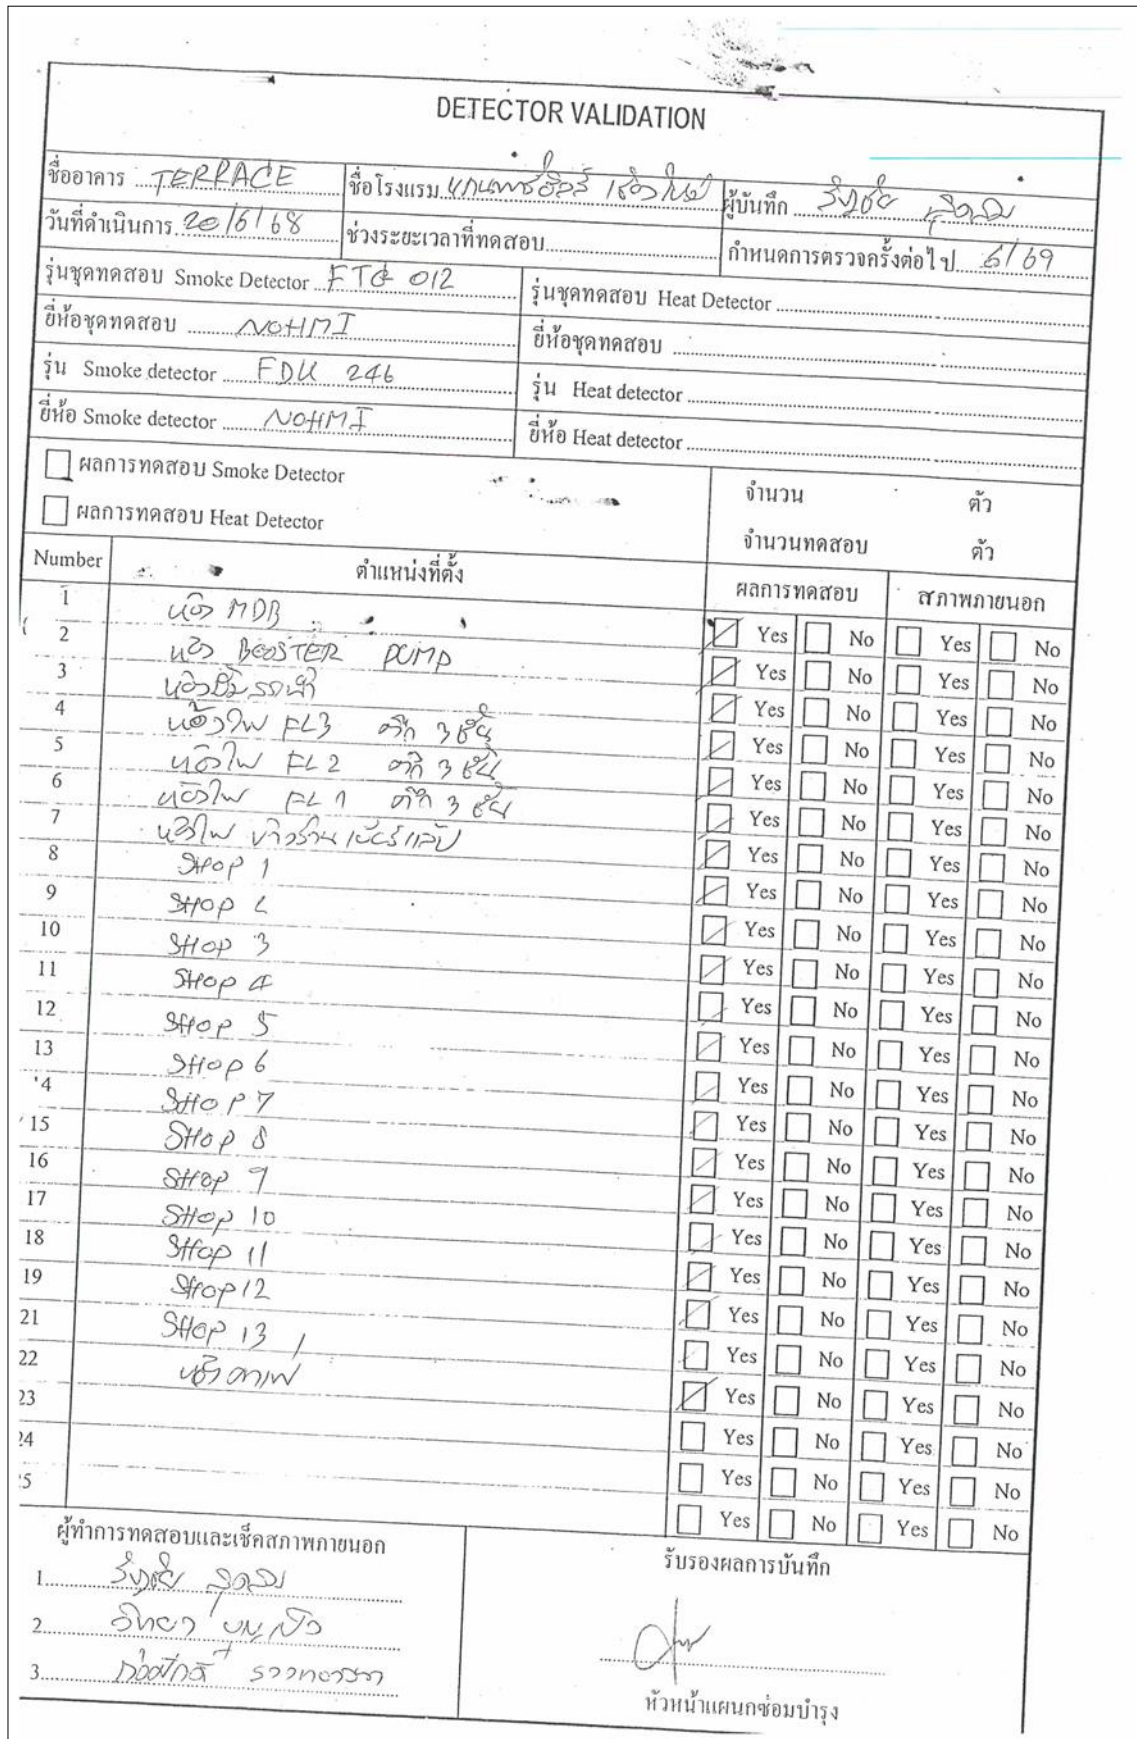 DETECTOR VALIDATION
ชื่ออาคาร TERRACE ชื่อโรงแรม ผู้บันทึก
วันที่ดำเนินการ 20/6/68 ช่วงระยะเวลาที่ทดสอบ กำหนดการตรวจครั้งต่อไป 6/69
รุ่นชุดทดสอบ Smoke Detector FTG 012 รุ่นชุดทดสอบ Heat Detector
ยี่ห้อชุดทดสอบ NOHMI ยี่ห้อชุดทดสอบ
รุ่น Smoke detector FDK 246 รุ่น Heat detector
ยี่ห้อ Smoke detector NOHMI ยี่ห้อ Heat detector
ผลการทดสอบ Smoke Detector จำนวน ตัว
ผลการทดสอบ Heat Detector จำนวนทดสอบ ตัว
Number ตำแหน่งที่ตั้ง ผลการทดสอบ สภาพภายนอก
1 ห้อง MDB Yes No Yes No
2 ห้อง BOOSTER PUMP Yes No Yes No
3 ห้องปั๊มรดน้ำ Yes No Yes No
4 ห้องไฟ FL3 ตึก 3 ชั้น Yes No Yes No
5 ห้องไฟ FL2 ตึก 3 ชั้น Yes No Yes No
6 ห้องไฟ FL1 ตึก 3 ชั้น Yes No Yes No
7 ห้องไฟ Yes No Yes No
8 SHOP 1 Yes No Yes No
9 SHOP 2 Yes No Yes No
10 SHOP 3 Yes No Yes No
11 SHOP 4 Yes No Yes No
12 SHOP 5 Yes No Yes No
13 SHOP 6 Yes No Yes No
14 SHOP 7 Yes No Yes No
15 SHOP 8 Yes No Yes No
16 SHOP 9 Yes No Yes No
17 SHOP 10 Yes No Yes No
18 SHOP 11 Yes No Yes No
19 SHOP 12 Yes No Yes No
21 SHOP 13 Yes No Yes No
22 Yes No Yes No
23 Yes No Yes No
24 Yes No Yes No
25 Yes No Yes No
Yes No Yes No
ผู้ทำการทดสอบและเช็คสภาพภายนอก รับรองผลการบันทึก
1
2
3
หัวหน้าแผนกซ่อมบำรุง